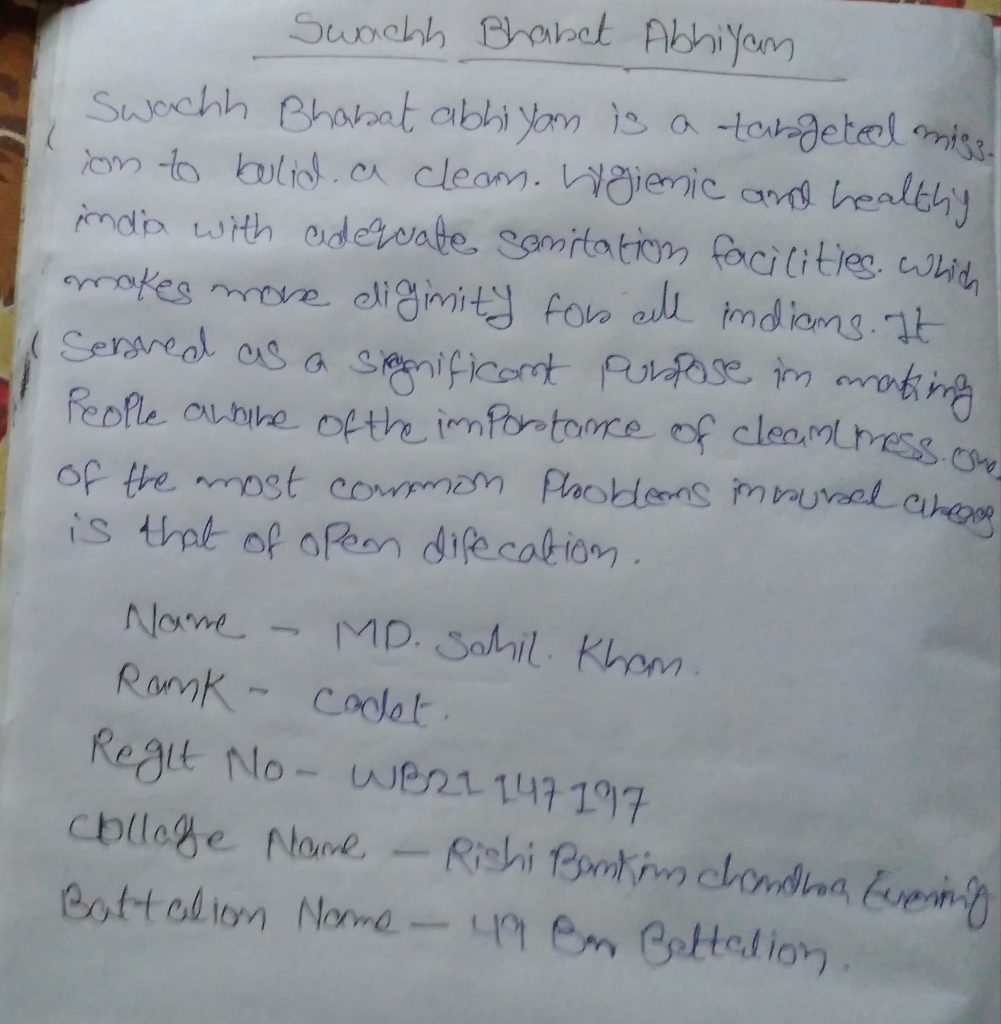 Swachh Bharat Abhiyan
Swachh Bharat abhiyan is a targeted miss-
ion to bulid. a clean. hygienic and healthy
india with adequate sanitation facilities. which
makes more diginity for all indians. It
Serwed as a significant Purpose in making
People aware of the importance of cleanlness. one
of the most common Ploblems in rural areas
is that of open difecation.
Name - MD. Sahil. Khan.
Rank - Cadet.
Reglt No - WB21147197
Collage Name - Rishi Bankim chandra Evening
Battalion Name - 49 Bn Battalion.